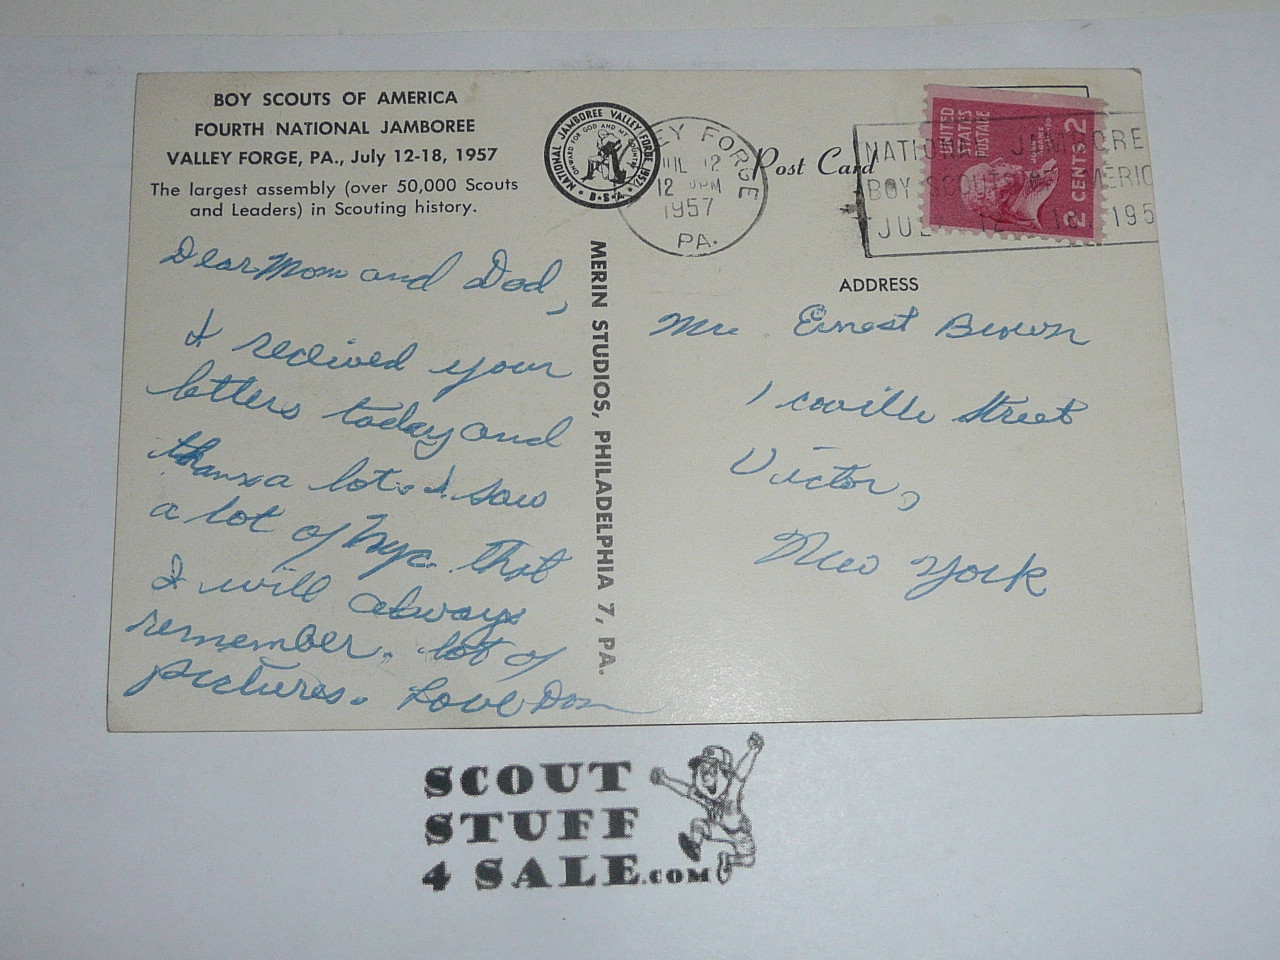 BOY SCOUTS OF AMERICA
FOURTH NATIONAL JAMBOREE
VALLEY FORGE, PA., July 12-18, 1957
The largest assembly (over 50,000 Scouts
and Leaders) in Scouting history.
Dear Mom and Dad,
I received your
letters today and
thanx a lot. I saw
a lot of Nyc. that
I will always
remember. lot of
pictures. Love Don
MERIN STUDIOS, PHILADELPHIA 7, PA.
NATIONAL JAMBOREE VALLEY FORGE, 1957
ONWARD FOR GOD AND MY COUNTRY
B•S•A
EY FORGE
JUL 12
12 PM
1957
PA.
Post Card
NATIONAL JAMBORE
BOY SCOUTS OF AMERIC
JULY 12 - 18 195
UNITED
STATES
POSTAGE
2 CENTS 2
ADDRESS
Mr. Ernest Brown
1 coville Street
Victor,
New York
SCOUT
STUFF
4 SALE.COM